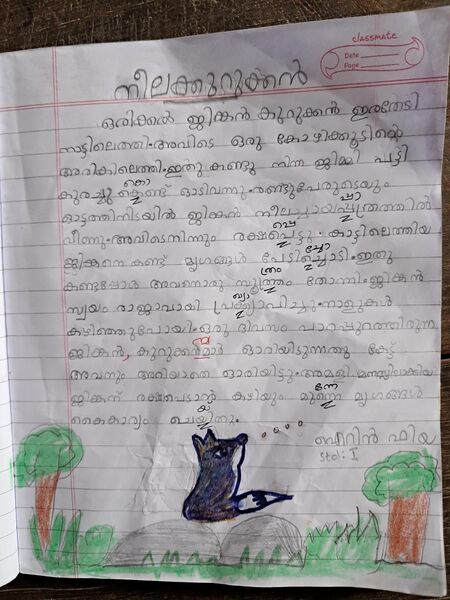 classmate
Date
Page
നീലക്കുറുക്കൻ
ഒരിക്കൽ ജിങ്കൻ കുറുക്കൻ ഇരതേടി
നാട്ടിലെത്തി. അവിടെ ഒരു കോഴിക്കൂട്ടിന്റെ
അരികിലെത്തി. ഇതു കണ്ടു നിന്ന ജിമ്മി പട്ടി
കൊ
കുരച്ചു ക്കെണ്ട് ഓടിവന്നു. രണ്ടുപേരുടെയും
പ്പാ
ഓട്ടത്തിനിടയിൽ ജിങ്കൻ നീലച്ചായ ത്രത്തിൽ
പ്പെ
വീണു. അവിടെനിന്നും രക്ഷപ്പെട്ടു. കാട്ടിലെത്തിയ
ച്ചോ
ജിങ്കനെ കണ്ട് മൃഗങ്ങൾ പേടിച്ചൊടി. ഇതു
ത്രം
കണ്ടപ്പോൾ അവനൊരു സൂത്രം തോന്നി. ജിങ്കൻ
ഖ്യാ
സ്വയം രാജാവായി പ്രഖ്യാപിച്ചു. നാളുകൾ
കഴിഞ്ഞുപോയി. ഒരു ദിവസം പാറപ്പുറത്തിരുന്ന
ജിങ്കൻ, കുറുക്കൻമാർ ഓരിയിടുന്നതു കേട്ട്
അവനും അറിയാതെ ഓരിയിട്ടു. അമളി മനസ്സിലാക്കിയ
ന്നേ
ജിങ്കന് രക്ഷപെടാൻ കഴിയും മുന്നെ മൃഗങ്ങൾ
യ്
കൈകാര്യം ചെയ്തു.
ഫിയ
Std: I